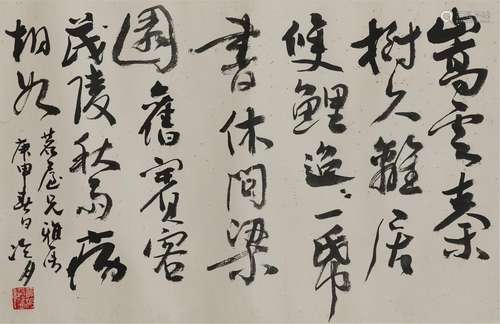 嵩雲秦
樹久離居
雙鯉迢〻一帋
書休問梁
園舊賓客
茂陵秋雨病
相如
兄雅
庚申春日